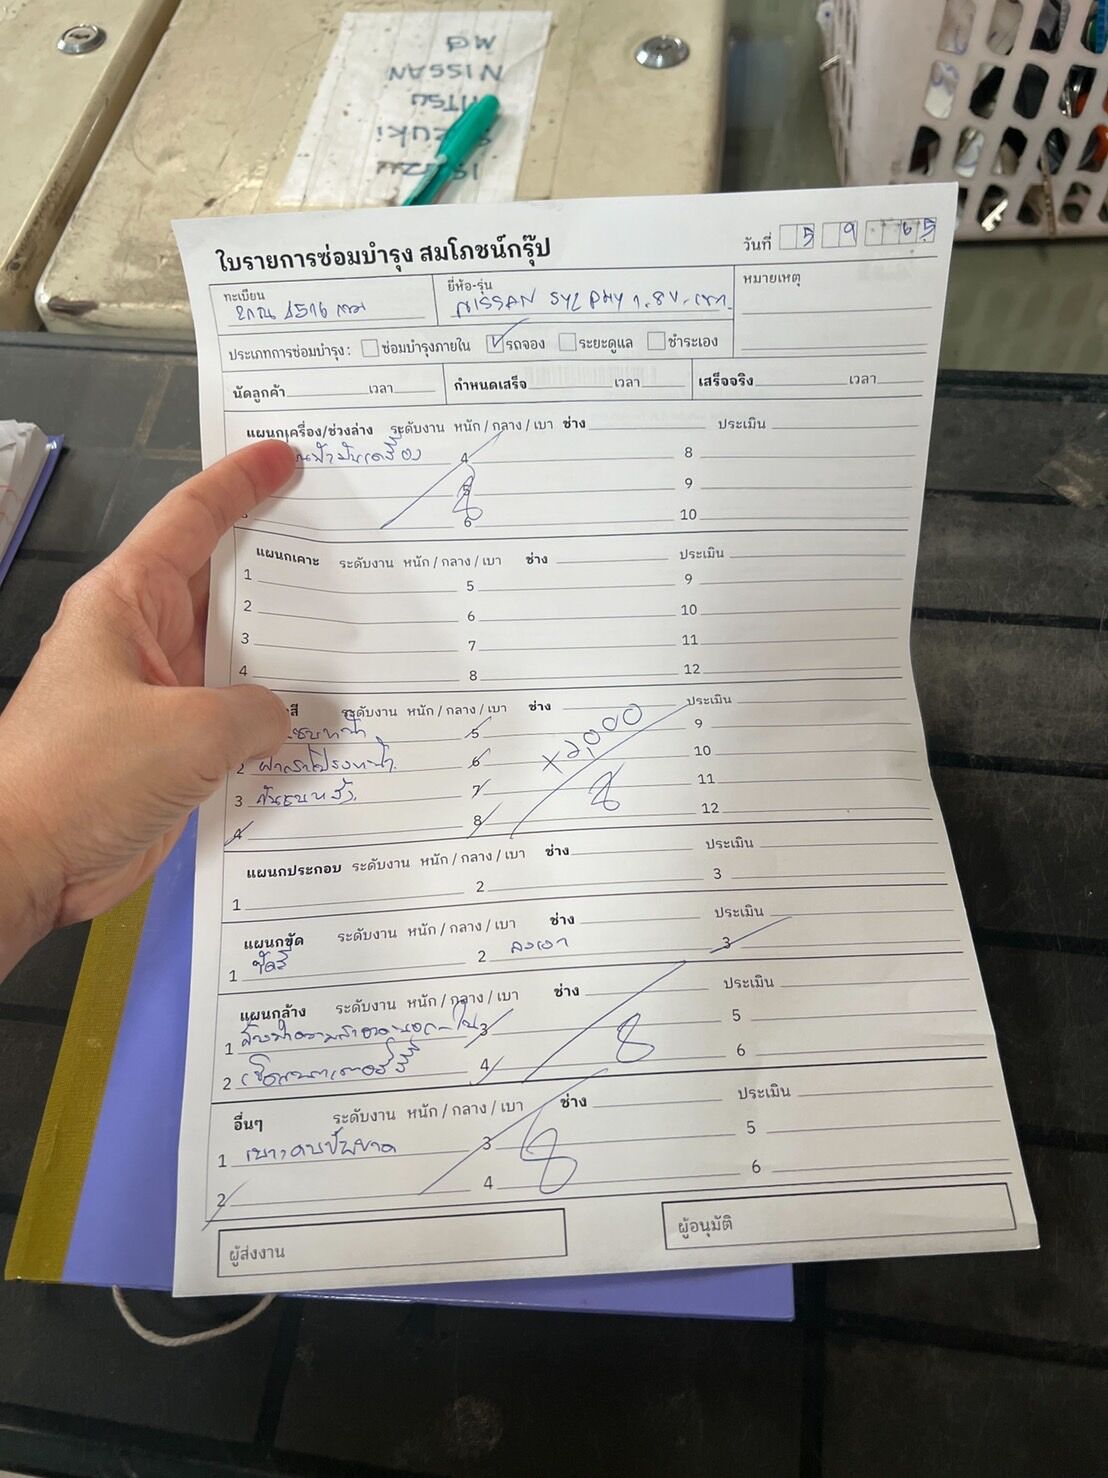 MG
NISSAN
MITSU
SUZUKI
ISUZU
ใบรายการซ่อมบำรุง สมโภชน์กรุ๊ป
วันที่ 5 9 65
ทะเบียน
4516
ยี่ห้อ-รุ่น
NISSAN SYLPHY 1.8V
หมายเหตุ
ประเภทการซ่อมบำรุง : ซ่อมบำรุงภายใน รถจอง ระยะดูแล ชำระเอง
นัดลูกค้า เวลา กำหนดเสร็จ เวลา เสร็จจริง เวลา
แผนกเครื่อง/ช่วงล่าง ระดับงาน หนัก / กลาง / เบา ช่าง ประเมิน
น้ำมันเครื่อง 4 8
5 9
6 10
แผนกเคาะ ระดับงาน หนัก / กลาง / เบา ช่าง ประเมิน
1 5 9
2 6 10
3 7 11
4 8 12
สี ระดับงาน หนัก / กลาง / เบา ช่าง ประเมิน
หน้า 5 x 2,000 9
2 ฝากระโปรงหน้า 6 10
3 กันชนหลัง 7 11
4 8 12
แผนกประกอบ ระดับงาน หนัก / กลาง / เบา ช่าง ประเมิน
1 2 3
แผนกขัด ระดับงาน หนัก / กลาง / เบา ช่าง ประเมิน
1 ขัดสี 2 ลงเงา 3
แผนกล้าง ระดับงาน หนัก / กลาง / เบา ช่าง ประเมิน
1 ล้างทำความสะอาดนอก-ใน 3 5
2 4 6
อื่นๆ ระดับงาน หนัก / กลาง / เบา ช่าง ประเมิน
1 3 5
2 4 6
ผู้ส่งงาน
ผู้อนุมัติ